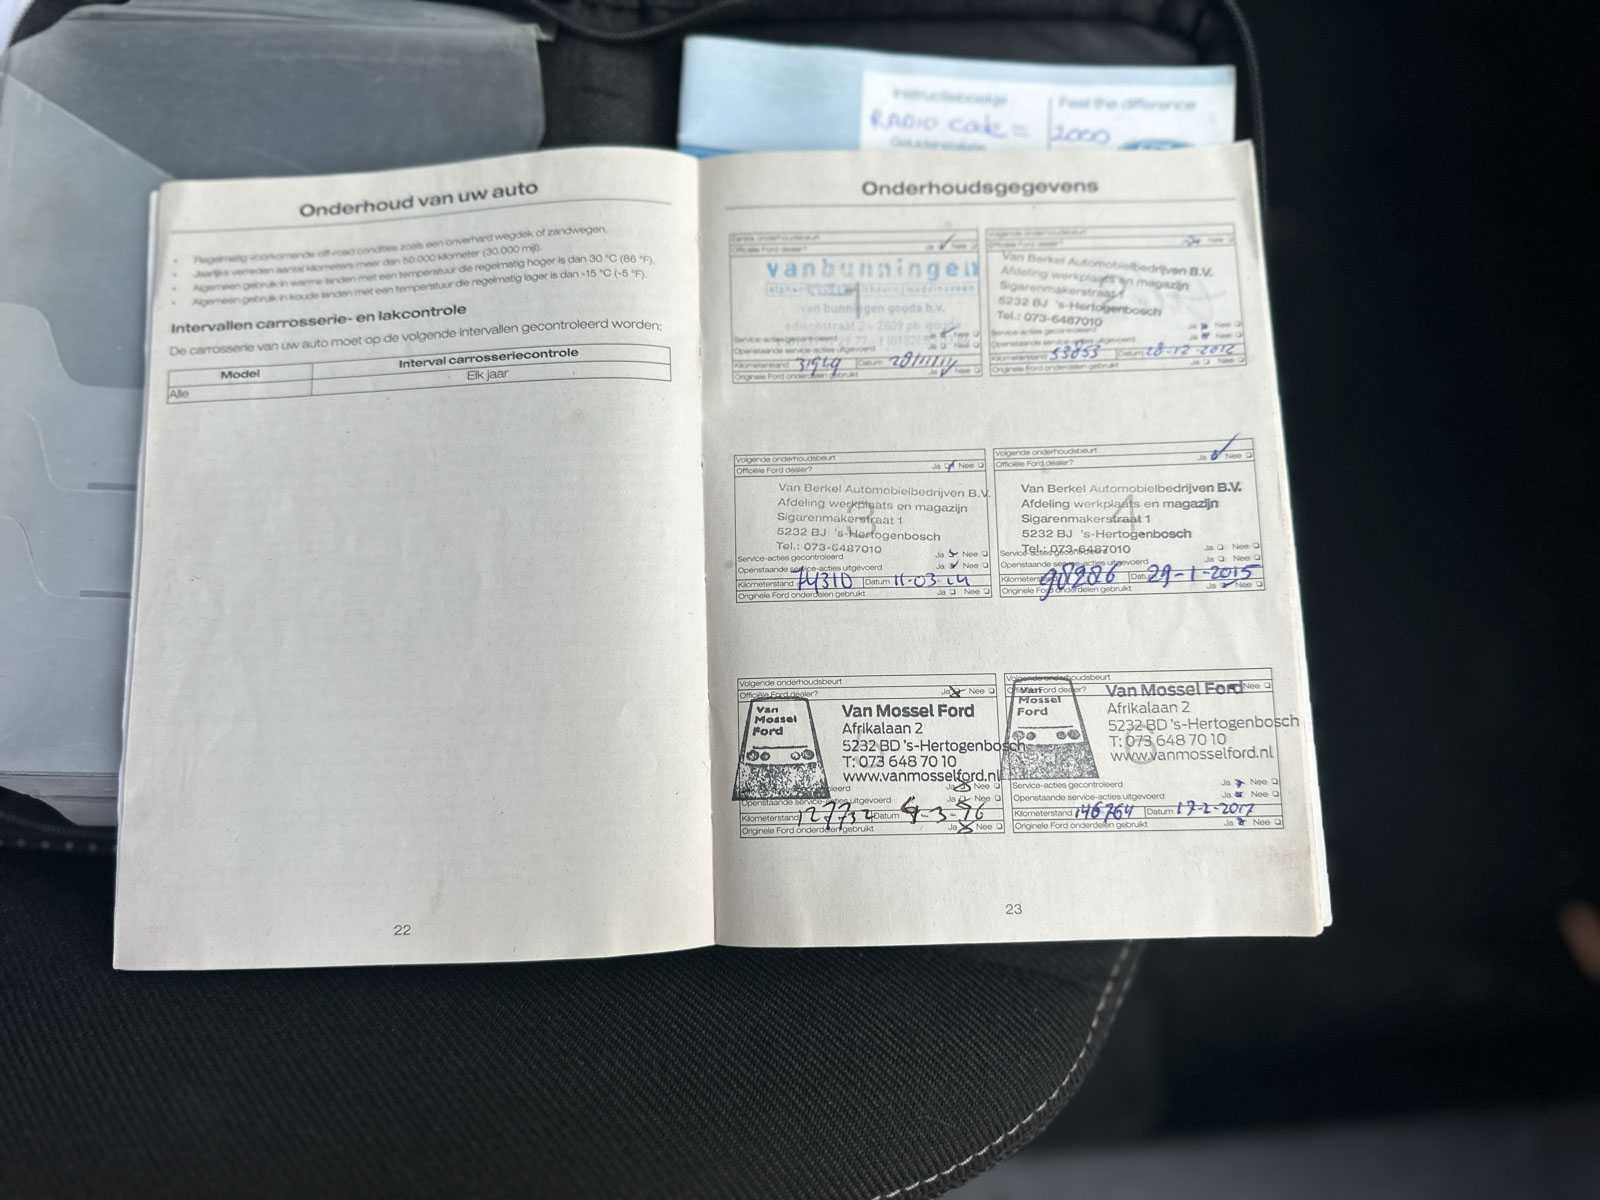 Instructieboekje
Feel the difference
RADIO code = 2000
Onderhoud van uw auto
• Regelmatig voorkomende off-road condities zoals een onverhard wegdek of zandwegen.
• Jaarlijks verreden aantal kilometers meer dan 50.000 kilometer (30.000 mijl).
• Algemeen gebruik in warme landen met een temperatuur die regelmatig hoger is dan 30 °C (86 °F).
• Algemeen gebruik in koude landen met een temperatuur die regelmatig lager is dan -15 °C (-5 °F).
Intervallen carrosserie- en lakcontrole
De carrosserie van uw auto moet op de volgende intervallen gecontroleerd worden:
Model Interval carrosseriecontrole
Alle Elk jaar
22
Onderhoudsgegevens
Eerste onderhoudsbeurt
Officiële Ford dealer? Ja Nee
vanbunningen
van bunningen gouda b.v.
edisonstraat 2 - 2809 pb gouda
Service-acties gecontroleerd Ja Nee
Openstaande service-acties uitgevoerd Ja Nee
Kilometerstand 31949 Datum 28/11/11
Originele Ford onderdelen gebruikt Ja Nee
Volgende onderhoudsbeurt
Ja Nee
Van Berkel Automobielbedrijven B.V.
Afdeling werkplaats en magazijn
Sigarenmakerstraat 1
5232 BJ 's-Hertogenbosch
Tel.: 073-6487010
Service-acties gecontroleerd Ja Nee
Openstaande service-acties uitgevoerd Ja Nee
Kilometerstand 53853 Datum 28-12-2012
Originele Ford onderdelen gebruikt Ja Nee
Volgende onderhoudsbeurt
Officiële Ford dealer? Ja Nee
Van Berkel Automobielbedrijven B.V.
Afdeling werkplaats en magazijn
3
Sigarenmakerstraat 1
5232 BJ 's-Hertogenbosch
Tel.: 073-6487010
Service-acties gecontroleerd Ja Nee
Openstaande service-acties uitgevoerd Ja Nee
Kilometerstand 74310 Datum 11-03-14
Originele Ford onderdelen gebruikt Ja Nee
Volgende onderhoudsbeurt
Officiële Ford dealer? Ja Nee
Van Berkel Automobielbedrijven B.V.
Afdeling werkplaats en magazijn
4
Sigarenmakerstraat 1
5232 BJ 's-Hertogenbosch
Tel.: 073-6487010
Service-acties gecontroleerd Ja Nee
Openstaande service-acties uitgevoerd Ja Nee
Kilometerstand 98986 Datum 29-1-2015
Originele Ford onderdelen gebruikt Ja Nee
Volgende onderhoudsbeurt
Officiële Ford dealer? Ja Nee
Van
Mossel
Ford
Van Mossel Ford
Afrikalaan 2
5232 BD 's-Hertogenbosch
T: 073 648 70 10
www.vanmosselford.nl
Ja Nee
Openstaande service-acties uitgevoerd Ja Nee
Kilometerstand 127732 Datum 4-3-16
Originele Ford onderdelen gebruikt Ja Nee
Volgende onderhoudsbeurt
Officiële Ford dealer? Nee
Van
Mossel
Ford
Van Mossel Ford
Afrikalaan 2
5232 BD 's-Hertogenbosch
6
T: 073 648 70 10
www.vanmosselford.nl
Service-acties gecontroleerd Ja Nee
Openstaande service-acties uitgevoerd Ja Nee
Kilometerstand 146764 Datum 17-2-2017
Originele Ford onderdelen gebruikt Ja Nee
23